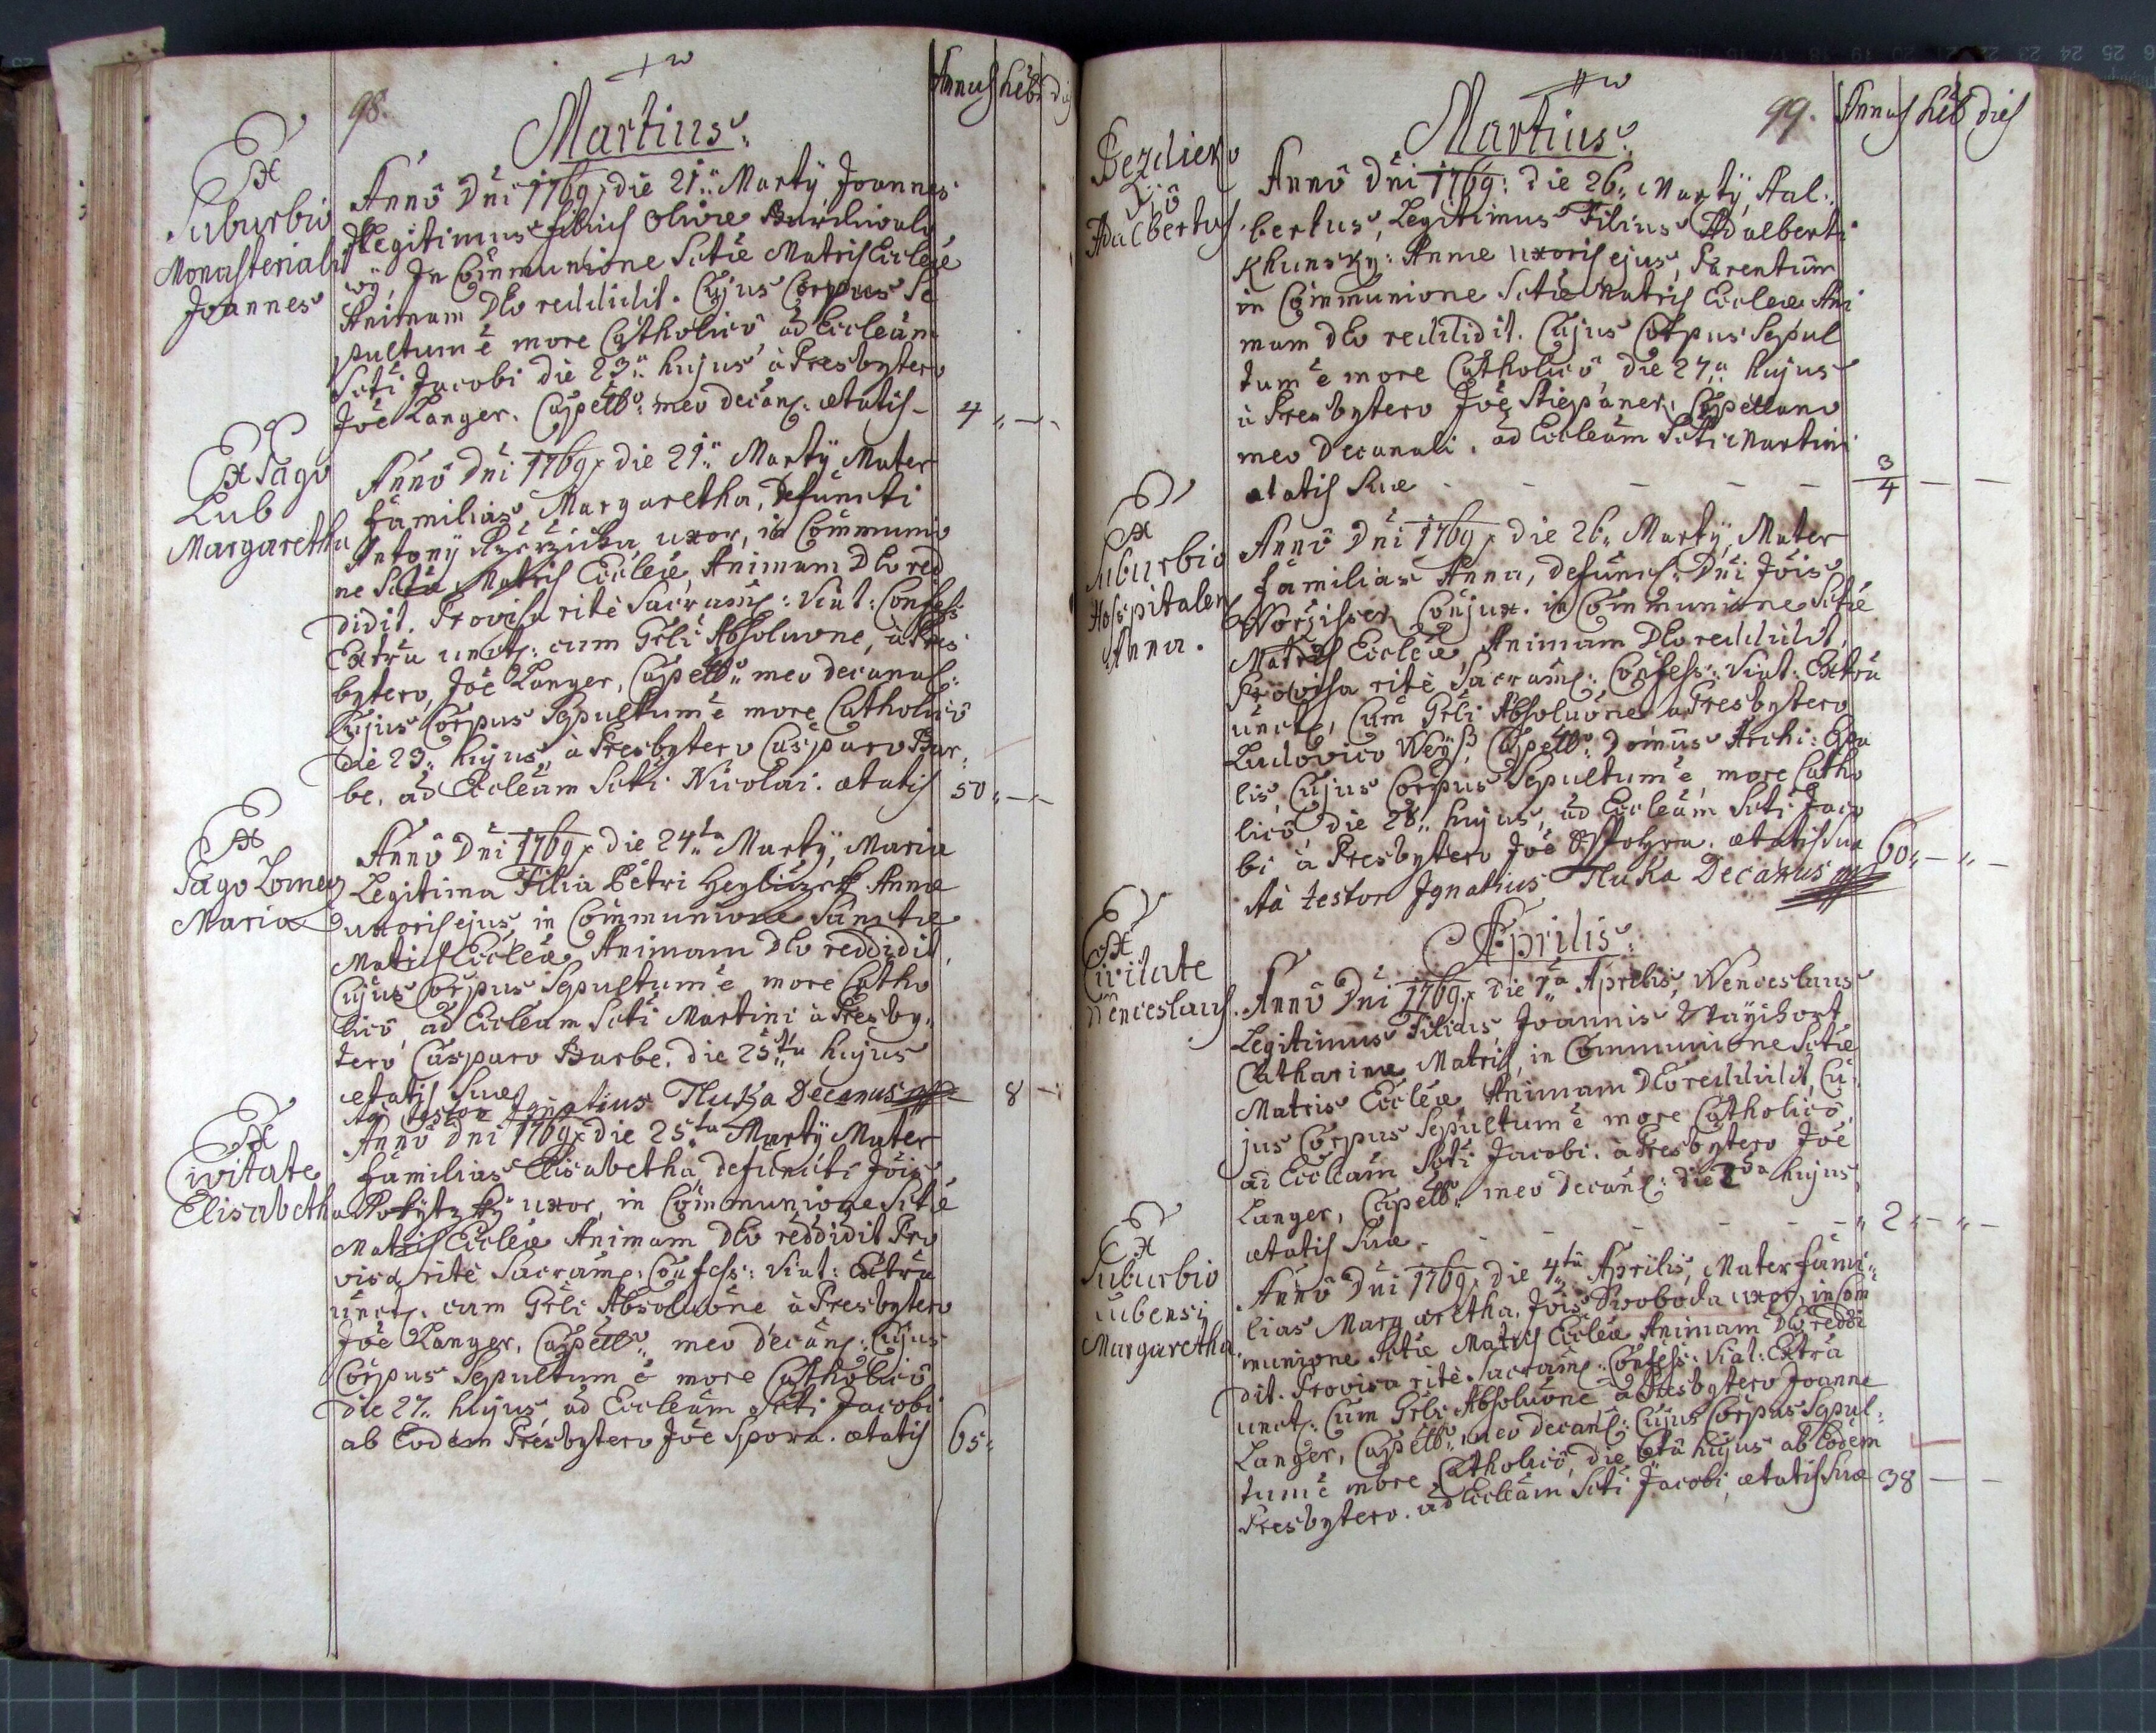 98.
Martius.
Annus heb. dies
Ex
Suburbio
Monasteriali
Joannes
Anno Dni 1769. die 21. Marty Joannes
Illegitimus filius
In Communione Sctae Matris Eccleae
Animam Deo reddidit. Cujus Corpus Se
pultum e more Catholico, ad Eccleam
Scti Jacobi die 23. hujus à Presbytero
Joe Langer. Capello: meo decanl. aetatis - 4
Ex Pago
Lub
Margaretha
Anno Dni 1769. die 21. Marty Mater
familias Margaretha, Defuncti
Antony Rzerzicha uxor, in Communio
ne Sctae Matris Eccleae, Animam Deo red
didit. Provisa rité Sacraml: Viat: Confess:
Extra unct: cum Grli Absolutione, à Pres
bytero, Joe Langer, Capello: meo decanal:
Cujus Corpus Sepultum e more Catholico
die 23. hujus, à Presbytero Casparo Bar-
be, ad Eccleam Scti Nicolai. aetatis 50
Ex
Pago Lomecz
Maria
Anno Dni 1769. die 24ta Marty, Maria
Legitima Filia Petri Annae
uxoris ejus, in Communione Sanctae
Matris Eccleae, Animam Deo reddidit,
Cujus Corpus Sepultum e more Catho
lico, ad Eccleam Scti Martini à Presby-
tero Casparo Barbe, die 25ta hujus
aetatis Suae 8
Ita testor Ignatius Tluka Decanus mp
Ex
Civitate
Elisabetha
Anno Dni 1769. die 25ta Marty Mater
familias Elisabetha, defuncti Jois
Rokytzky uxor, in Communione Sctae
Matris Eccleae Animam Deo reddidit Pro
visa rité Sacraml: Confess: Viat: Extra
unct: cum Grli Absolutione à Presbytero
Joe Langer, Capello: meo decanl: Cujus
Corpus Sepultum e more Catholico
die 27. hujus, ad Eccleam Scti Jacobi
ab Eodem Presbytero Joe Spora. aetatis 65
99.
Martius.
Annus heb dies
Bezdiekov
Adalbertus
Anno Dni 1769: die 26. Marty, Aal-
bertus, Legitimus Filius Adalberti
Khunsky: Annae uxoris ejus, Parentum
in Communione Sctae Matris Eccleae Ani
mam Deo reddidit. Cujus Corpus Sepul
tum e more Catholico die 27. hujus
à Presbytero Joe Stiepaner, Capellano
meo Decanali, ad Eccleam Scti Martini
aetatis Suae - - - - - 3/4 - -
Ex
Suburbio
Hospitalen
Anna.
Anno Dni 1769. die 26. Marty, Mater
familias Anna, defunct: Dni Jois
Conjux. in Communione Sctae
Matris Eccleae, Animam Deo reddidit,
Provisa rité Sacraml: Confess: Viat: Extra
unct:, Cum Grli Absolutione à Presbytero
Ludovico Weyß, Capello: Domus Archi: Epa
lis, Cujus Corpus Sepultum e, more Catho
lico die 28. hujus, ad Eccleam Scti Jaco
bi à Presbytero Joe aetatis Suae 60 - -
Ita testor Ignatius Tluka Decanus mp
Aprilis.
Ex
Civitate
Wenceslaus.
Anno Dni 1769. die 1a Aprilis, Wenceslaus
Legitimus Filius, Joannis
Catharinae Matris, in Communione Sctae
Matris Eccleae Animam Deo reddidit, Cu-
jus Corpus Sepultum e more Catholico,
ad Eccleam Scti Jacobi. à Presbytero Joe
Langer, Capello: meo decanl: die 2da hujus,
aetatis Suae - - - - - 2 - -
Ex
Suburbio
Lubensi
Margaretha
Anno Dni 1769. die 4ta Aprilis, Mater fami-
lias Margaretha, Jois Swoboda uxor, in Com
munione Sctae Matris Eccleae Animam Deo reddi
dit. Provisa rité Sacraml: Confess: Viat: Extra
unct: Cum Grli Absolutione à Presbytero Joanne
Langer, Capello: meo decanl: Cujus Corpus Sepul-
tum e more Catholico, die 6ta hujus ab Eodem
Presbytero. ad Eccleam Scti Jacobi, aetatis Suae 38 - -